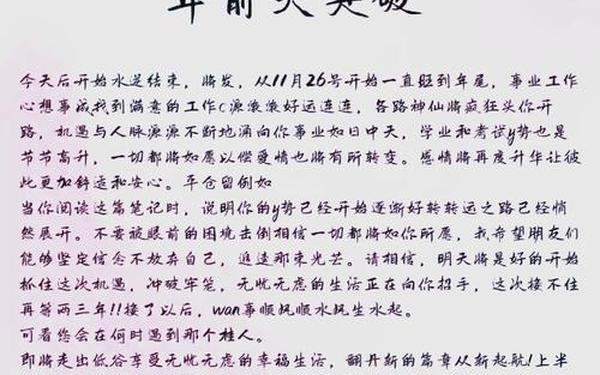 年前大突破
今天后开始水逆结束，将发，从11月26号开始一直旺到年尾，事业工作
心想事成找到满意的工作c源滚滚好运连连，各路神仙将疯狂头你开
路，机遇与人脉源源不断地涌向你事业如日中天，学业和考试y势也是
节节高升，一切都将如愿以偿爱情也将有所转变。感情将再度升华让彼
此更加舒适和安心。平仓留例如
当你阅读这篇笔记时，说明你的y势已经开始逐渐好转转运之路已经悄
然展开。不要被眼前的困境击倒相信一切都将如你所愿，我希望朋友们
能够坚定信念不放弃自己，追逐那束光芒。请相信，明天将是好的开始
抓住这次机遇，冲破牢笼，无忧无虑的生活正在向你招手，这次接不住
再等两三年!!接了以后，wan事顺帆顺水帆生水起。
可看您会在何时遇到那个桂人。
即将走出低谷享受无忧无虑的幸福生活，翻开新的篇章从新起航!上半